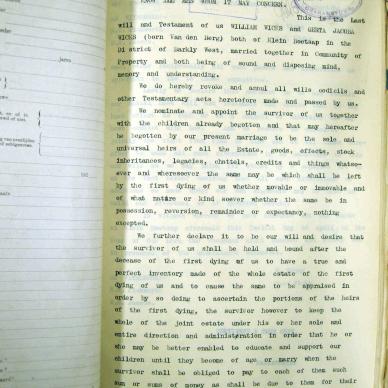 KNOW ALL MEN WHOM IT MAY CONCERN.
This is the Last
will and Testament of us WILLIAM VICES and GEETA JACOBA
VICES (born Van den Berg) both of Klein Boetsap in the
District of Barkly West, married together in Community of
Property and both being of sound and disposing mind,
memory and understanding.
We do hereby revoke and annul all wills codicils and
other Testamentary acts heretofore made and passed by us.
We nominate and appoint the survivor of us together
with the children already begotten and that may hereafter
be begotten by our present marriage to be the sole and
universal heirs of all the Estate, goods, effects, stock
inheritances, legacies, chattels, credits and things whatso-
ever and wheresoever the same may be which shall be left
by the first dying of us whether movable or immovable and
of what nature or kind soever whether the same be in
possession, reversion, remainder or expectancy, nothing
excepted.
We further declare it to be our will and desire that
the survivor of us shall be held and bound after the
decease of the first dying of us to have a true and
perfect inventory made of the whole estate of the first
dying of us and to cause the same to be appraised in
order by so doing to ascertain the portions of the heirs
of the first dying, the survivor however to keep the
whole of the joint estate under his or her sole and
entire direction and administration in order that he or
she may be better enabled to educate and support our
children until they become of age or marry when the
survivor shall be obliged to pay to each of them such
sum or sums of money as shall be due to them for their